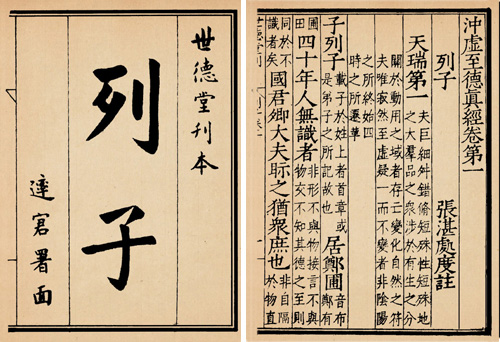 沖虛至德真經卷第一
列子 張湛處度註
天瑞第一 夫巨細舛錯脩短殊性
之大羣品之衆涉於有生之分
關於動用之域者存亡變化自然之符
夫唯寂然至虛凝一而不變者非陰陽
之所終始四
時之所遷革
子列子 載子於姓上者首章或
是弟子之所記故也 居鄭圃 音布
鄭有
圃
田 四十年人無識者 非形不與物接言不與
物交不知其德之至則
同於不
識者矣 國君卿大夫眎之猶衆庶也 非自隔
於物直
世德堂刊
世德堂刊本
列子
達 署面